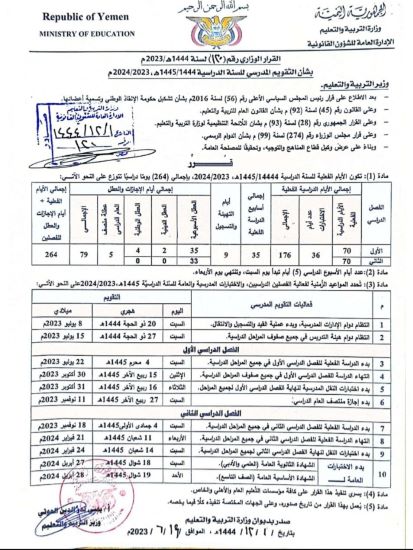 بسم الله الرحمن الرحيم
Republic of Yemen
MINISTRY OF EDUCATION
الجمهورية اليمنية
وزارة التربية والتعليم
الإدارة العامة للشؤون القانونية
القرار الوزاري رقم (١٢٠) لسنة 1444هـ/2023م
بشأن التقويم المدرسي للسنة الدراسية 1445/1444هـ، 2024/2023م
وزير التربية والتعليم.
بعد الاطلاع على قرار رئيس المجلس السياسي الأعلى رقم (56) لسنة 2016م بشأن تشكيل حكومة الإنقاذ الوطني وتسمية أعضائها.
وعلى القانون رقم (45) لسنة (92) م بشأن القانون العام للتربية والتعليم.
وعلى القرار الجمهوري رقم (28) لسنة (93) م بشأن اللائحة التنظيمية لوزارة التربية والتعليم.
وعلى قرار مجلس الوزراء رقم (274) لسنة (99) م بشأن الدوام الرسمي.
وبناءً على عرض وكيل قطاع المناهج والتوجيه، وتحقيقاً للمصلحة العامة.
قــرر
مادة (1): تكون الأيام الفعلية للسنة الدراسية 1445/14444هـ، 2024/2023م، بإجمالي (264) يوماً دراسياً تتوزع على النحو الآتي:
الفصل الدراسي
إجمالي الأيام الدراسية الفعلية
الأيام الفعلية
عدد أيام الاختبارات
الإجمالي
إجمالي أسابيع الفصل الدراسي
أيام التهيئة والتسجيل
إجمالي أيام الإجازات والعطل
العطل الأسبوعية
العطل الدينية
العطل الوطنية
عطلة منتصف العام الدراسي
الإجمالي
إجمالي الأيام الفعلية + أيام الإجازات والعطل للفصلين
الأول 70 36 176 35 9 35 2 4 5 79 264
الثاني 70 33 0 0
مادة (2): عدد أيام الأسبوع الدراسي (5) أيام تبدأ يوم السبت، وتنتهي يوم الأربعاء.
مادة (3): تحدد المواعيد الزمنية لفعالية الفصلين الدراسيين، والاختبارات المدرسية والعامة للسنة الدراسية 1445هـ، 2024/2023م على النحو الآتي:
م فعاليات التقويم المدرسي التقويم
اليوم هجري ميلادي
1 انتظام دوام الإدارات المدرسية، وبدء عملية القيد والتسجيل والانتقال. السبت 20 ذو الحجة 1444هـ 8 يوليو 2023م
2 انتظام دوام هيئة التدريس في جميع صفوف المراحل الدراسية. السبت 27 ذو الحجة 1444هـ 15 يوليو 2023م
الفصل الدراسي الأول
3 بدء الدراسة الفعلية للفصل الدراسي الأول في جميع المراحل الدراسية. السبت 4 محرم 1445هـ 22 يوليو 2023م
4 انتهاء الدراسة الفعلية للفصل الدراسي الأول في جميع صفوف المراحل الدراسية. الإثنين 15 ربيع الآخر 1445هـ 30 أكتوبر 2023م
5 بدء اختبارات النقل المدرسية لنهاية الفصل الدراسي الأول لجميع المراحل. الثلاثاء 16 ربيع الآخر 1445هـ 31 أكتوبر 2023م
6 بدء إجازة منتصف العام الدراسي. السبت 27 ربيع الآخر 1445هـ 11 نوفمبر 2023م
الفصل الدراسي الثاني
7 بدء الدراسة الفعلية للفصل الدراسي الثاني في جميع المراحل الدراسية. السبت 4 جمادى الأولى 1445هـ 18 نوفمبر 2023م
8 انتهاء الدراسة الفعلية للفصل الدراسي الثاني في جميع المراحل الدراسية. الأربعاء 11 شعبان 1445هـ 21 فبراير 2024م
9 بدء اختبارات النقل المدرسية لنهاية الفصل الدراسي الثاني لجميع المراحل. السبت 14 شعبان 1445هـ 24 فبراير 2024م
10 بدء الاختبارات العامة لـ الشهادة الثانوية العامة (العلمي والأدبي). السبت 18 شوال 1445هـ 27 أبريل 2024م
الشهادة الأساسية (الصف التاسع). الأحد 19 شوال 1445هـ 28 أبريل 2024م
مادة (4): يسري تنفيذ هذا القرار على كافة مؤسسات التعليم العام الأهلي والخاص.
مادة (5): يُعمل بهذا القرار من تاريخ صدوره، وعلى الجهات المختصة تنفيذه كلاً فيما يخصه.
صدر بديوان وزارة التربية والتعليم
وزير التربية والتعليم